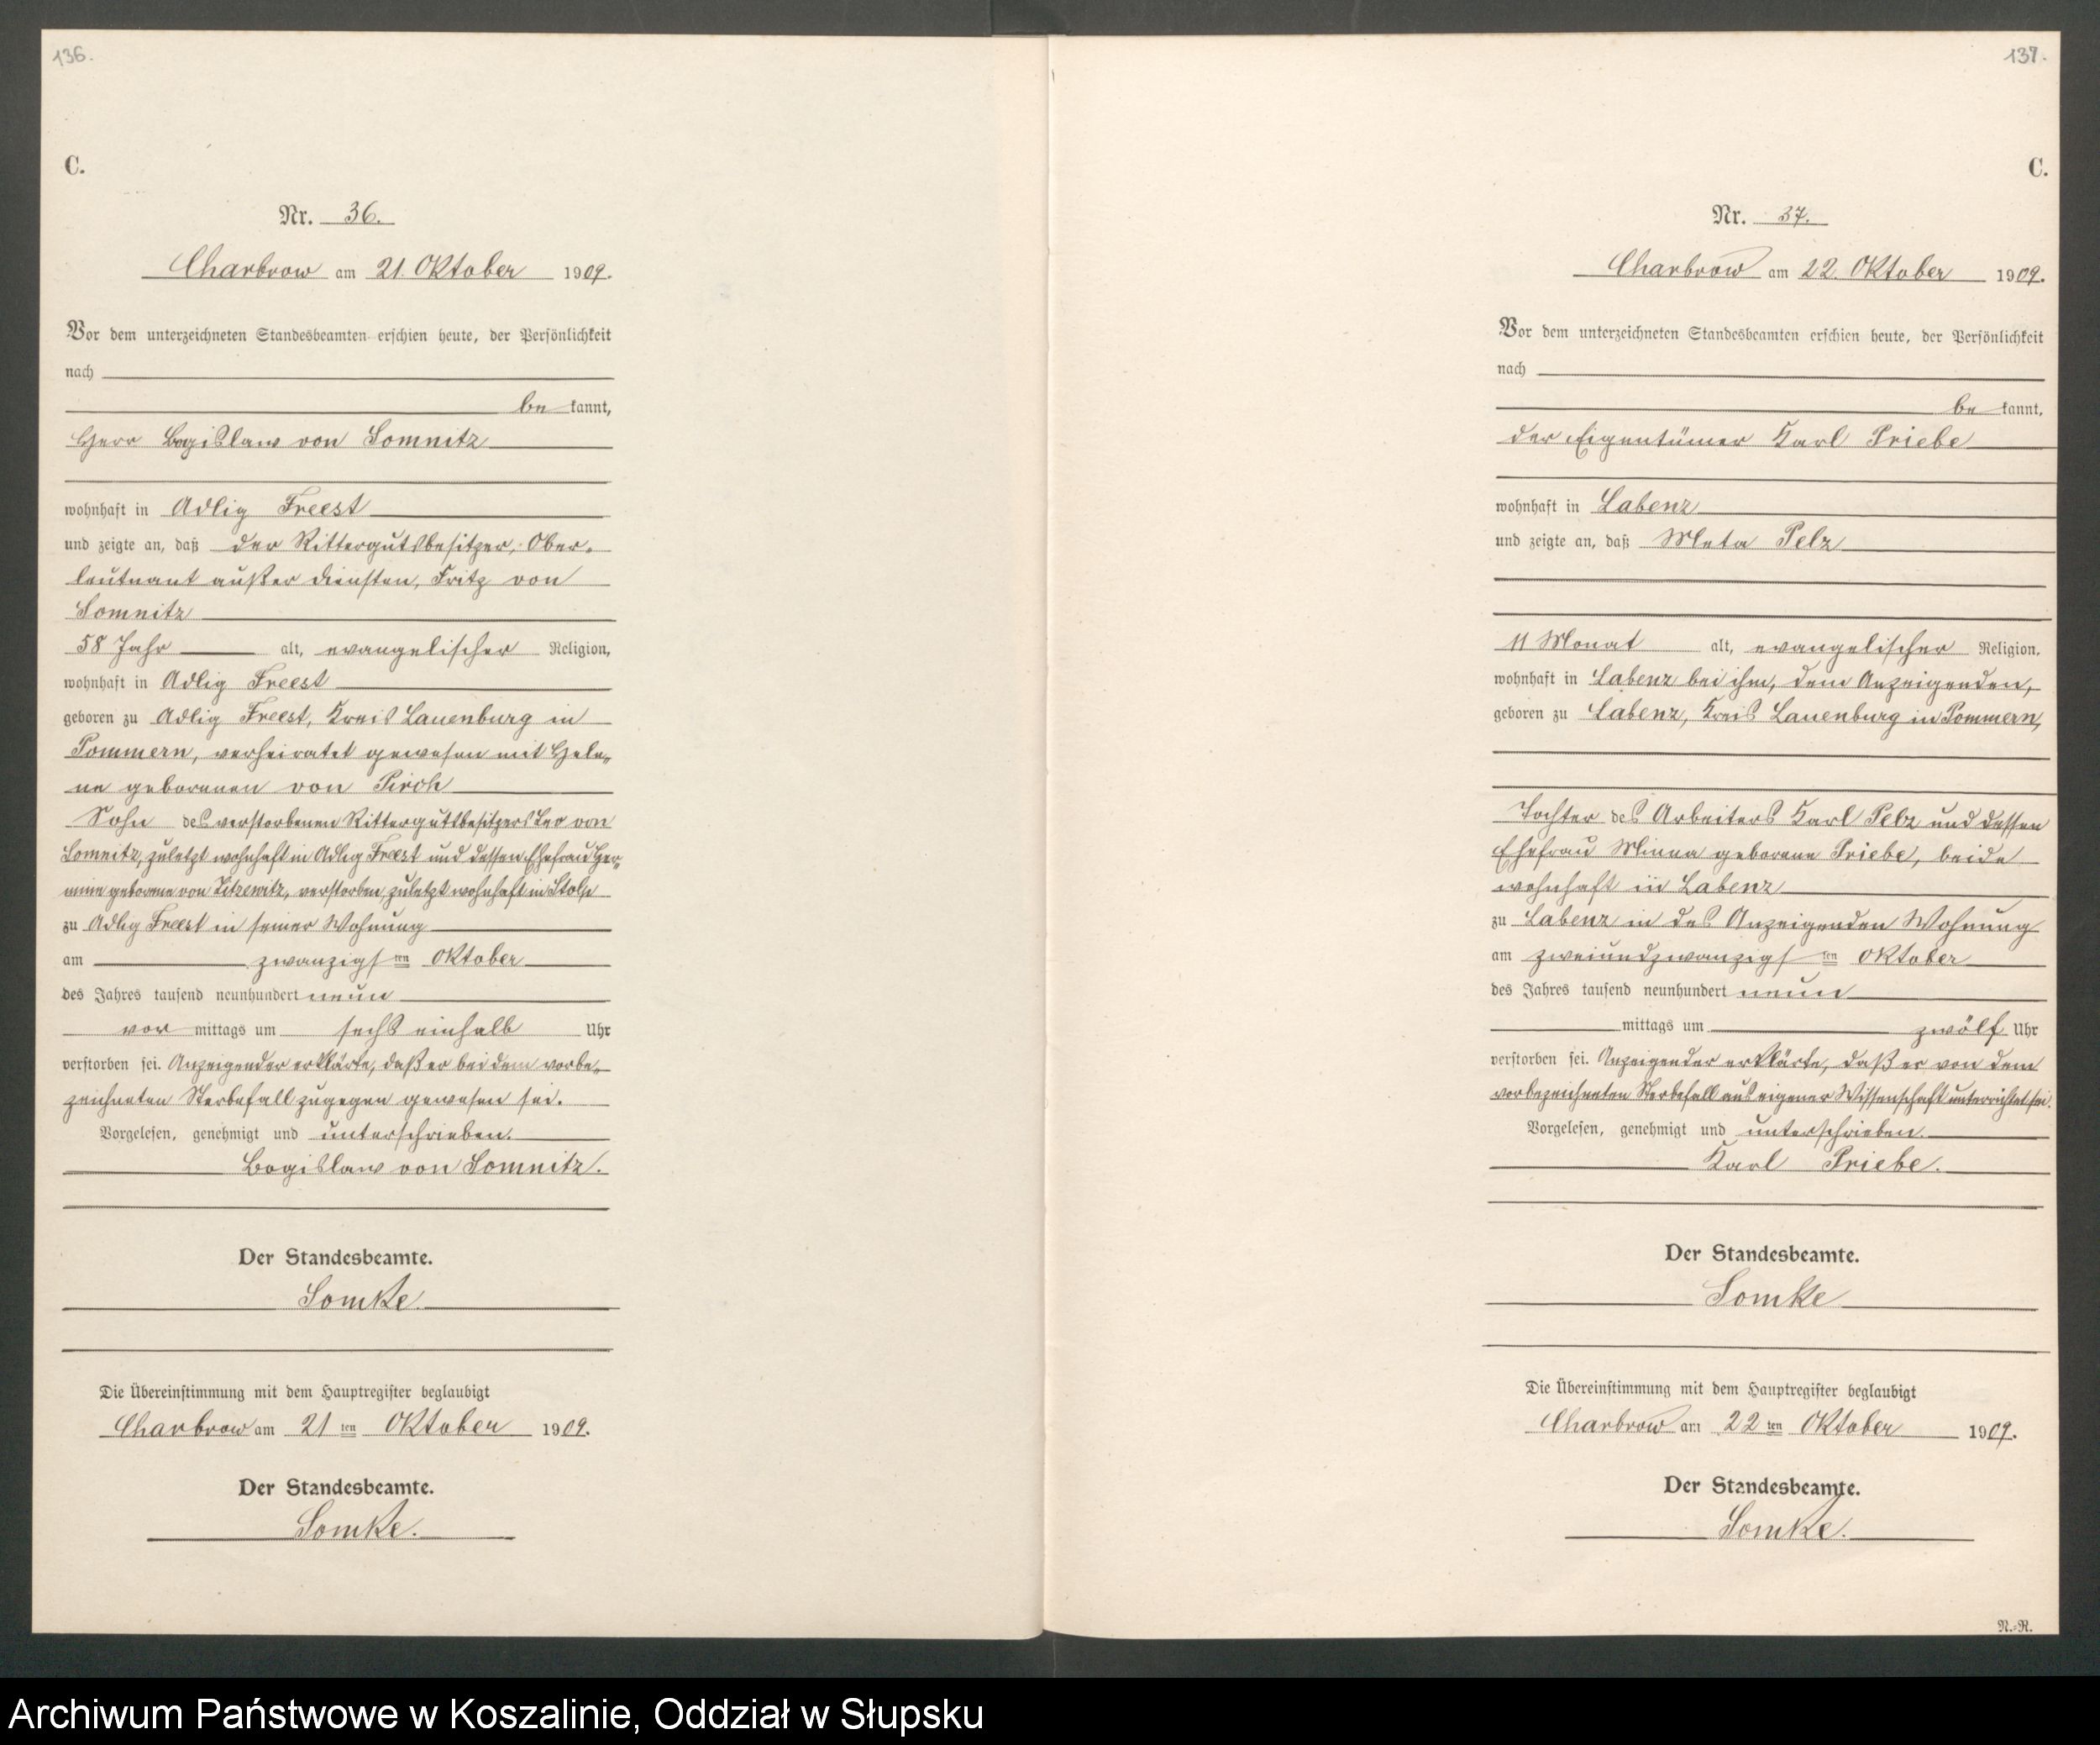 136.
C.
Nr. 36.
Charbrow am 21. Oktober 1909.
Vor dem unterzeichneten Standesbeamten erschien heute, der Persönlichkeit
nach
be kannt,
Herr Bogislaw von Somnitz
wohnhaft in Adlig Freest
und zeigte an, daß der Rittergutsbesitzer, Ober-
leutnant außer Diensten, Fritz von
Somnitz
58 Jahr alt, evangelischer Religion,
wohnhaft in Adlig Freest
geboren zu Adlig Freest, Kreis Lauenburg in
Pommern, verheiratet gewesen mit Hele-
ne geborenen von Pirch
Sohn des verstorbenen Rittergutsbesitzers Leo von
Somnitz, zuletzt wohnhaft in Adlig Freest und dessen Ehefrau Her-
mine geborene von Zitzewitz, verstorben, zuletzt wohnhaft in Stolp
zu Adlig Freest in seiner Wohnung
am zwanzigsten Oktober
des Jahres tausend neunhundert neun
vor mittags um sechs einhalb Uhr
verstorben sei. Anzeigender erklärte, daß er bei dem vorbe-
zeichneten Sterbefall zugegen gewesen sei.
Vorgelesen, genehmigt und unterschrieben.
Bogislaw von Somnitz.
Der Standesbeamte.
Somke.
Die Übereinstimmung mit dem Hauptregister beglaubigt
Charbrow am 21 ten Oktober 1909.
Der Standesbeamte.
Somke.
137.
C.
Nr. 37.
Charbrow am 22. Oktober 1909.
Vor dem unterzeichneten Standesbeamten erschien heute, der Persönlichkeit
nach
be kannt,
der Eigentümer Karl Priebe
wohnhaft in Labenz
und zeigte an, daß Meta Pelz
11 Monat alt, evangelischer Religion,
wohnhaft in Labenz bei ihm, dem Anzeigenden,
geboren zu Labenz, Kreis Lauenburg in Pommern,
Tochter des Arbeiters Karl Pelz und dessen
Ehefrau Minna geborene Priebe, beide
wohnhaft in Labenz
zu Labenz in des Anzeigenden Wohnung
am zweiundzwanzigsten Oktober
des Jahres tausend neunhundert neun
mittags um zwölf Uhr
verstorben sei. Anzeigender erklärte, daß er von dem
vorbezeichneten Sterbefall aus eigener Wissenschaft unterrichtet sei.
Vorgelesen, genehmigt und unterschrieben.
Karl Priebe.
Der Standesbeamte.
Somke
Die Übereinstimmung mit dem Hauptregister beglaubigt
Charbrow am 22 ten Oktober 1909.
Der Standesbeamte.
Somke.
N.-R.
Archiwum Państwowe w Koszalinie, Oddział w Słupsku